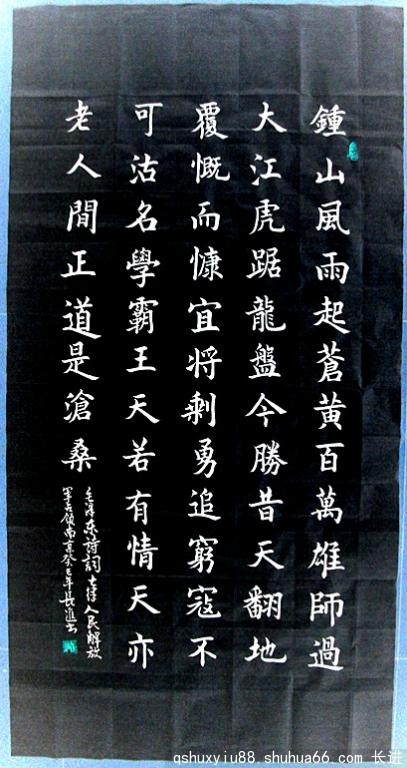 鍾山風雨起蒼黄百萬雄師過
大江虎踞龍盤今勝昔天翻地
覆慨而慷宜将剩勇追窮寇不
可沽名學霸王天若有情天亦
老人間正道是滄桑
毛澤东詩詞七律人民解放
军占領南京癸巳年长進书
qshuxyiu88.shuhua66.com 长进